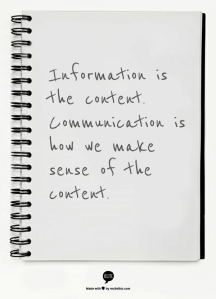 Information is
the content.
Communication is
how we make
sense of the
content.
made with ♥ by recitethis.com